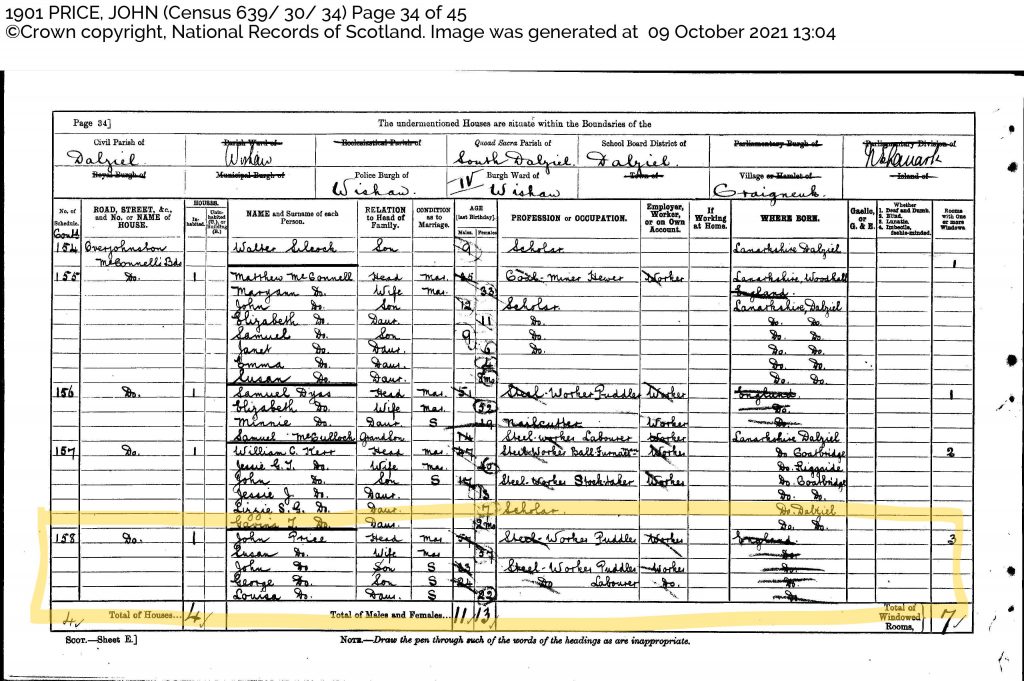 1901 PRICE, JOHN (Census 639/ 30/ 34) Page 34 of 45
©Crown copyright, National Records of Scotland. Image was generated at 09 October 2021 13:04
Page 34] The undermentioned Houses are situate within the Boundaries of the
Civil Parish of Parish Ward of Ecclesiastical Parish of Quoad Sacra Parish of School Board District of Parliamentary Burgh of Parliamentary Division of
Dalziel Wishaw South Dalziel Dalziel
Royal Burgh of Municipal Burgh of Police Burgh of Burgh Ward of Town of Village or Hamlet of Island of
Wishaw IV Wishaw Craigneuk
No. of Schedule. ROAD, STREET, &c., and No. or NAME of HOUSE. HOUSES. Inhabited NAME and Surname of each Person. RELATION to Head of Family. CONDITION as to Marriage. AGE [last Birthday]. Males. Females PROFESSION or OCCUPATION. Employer, Worker, or on Own Account. If Working at Home. WHERE BORN. Gaelic, or G. & E. Whether 1. Deaf and Dumb. 2. Blind. 3. Lunatic. 4. Imbecile, feeble-minded. Rooms with One or more Windows
154 Overjohnston Walter Son 9 Scholar Lanarkshire Dalziel
McConnell's Bds 1
155 Do. 1 Matthew McConnell Head Mar. Coal Miner Hewer Worker Lanarkshire,
Maryann Do. Wife Mar. 33 England
John Do. Son 12 Scholar Lanarkshire, Dalziel
Elizabeth Do. Daur. 11 Do. Do. Do.
Samuel Do. Son 9 Do. Do. Do.
Janet Do. Daur. 6 Do. Do. Do.
Emma Do. Daur. Do. Do.
Susan Do. Daur. Do. Do.
156 Do. 1 Samuel Dyas Head Mar. 51 Steel Worker Puddler Worker England 1
Elizabeth Do. Wife Mar. 52 Do.
Minnie Do. Daur. S 19 Nailcutter Worker Do.
Samuel McCulloch Grandson 14 Steel-worker Labourer Worker Lanarkshire Dalziel
157 Do. 1 William C. Kerr Head Mar. Steel Worker Ball Furnace Worker Do. Coatbridge 2
Jessie G. T. Do. Wife Mar. 40 Do.
John Do. Son S 17 Steel Worker Stocktaker Worker Do. Coatbridge
Jessie J. Do. Daur. 13 Do. Do.
Lizzie S. G. Do. Daur. 7 Scholar Do. Dalziel
Lavina T. Do. Daur. 2mo Do. Do.
158 Do. 1 John Price Head Mar Steel Worker Puddler Worker England 3
Susan Do. Wife Mar Do.
John Do Son S 23 Steel Worker Puddler Worker Do.
George Do. Son S Do Labourer Do. Do.
Louisa Do. Daur. S 22 Do.
4 Total of Houses... 4 Total of Males and Females... 11 13 Total of Windowed Rooms, 7
SCOT.—Sheet E.] NOTE.—Draw the pen through such of the words of the headings as are inappropriate.